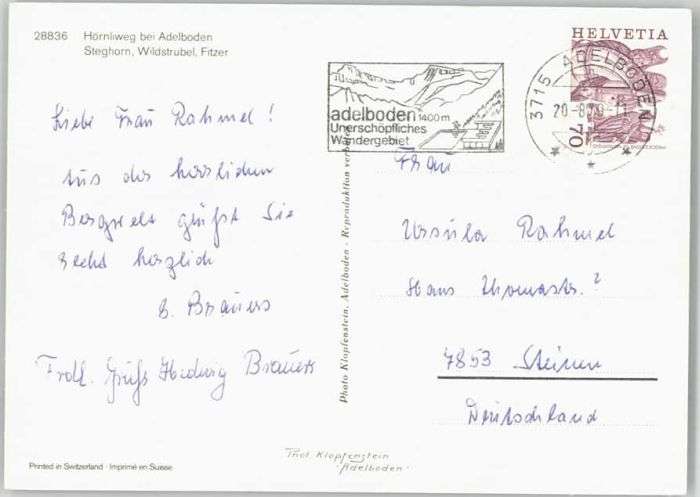 28836 Hörnliweg bei Adelboden
Steghorn, Wildstrubel, Fitzer
Liebe Frau Rahmel!
Aus der herrlichen
Bergwelt grüßt Sie
recht herzlich
B. Brauers
Frdl. Gruß Hedwig Brauers
Printed in Switzerland · Imprimé en Suisse
Photo Klopfenstein, Adelboden · Reproduktion verboten
adelboden 1400 m
Unerschöpfliches
Wandergebiet
HELVETIA
70
3715 ADELBODEN
20.-8.79-11
Frau
Ursula Rahmel
Hans Thomastr. 2
7853 Steinen
Deutschland
Phot. Klopfenstein
Adelboden